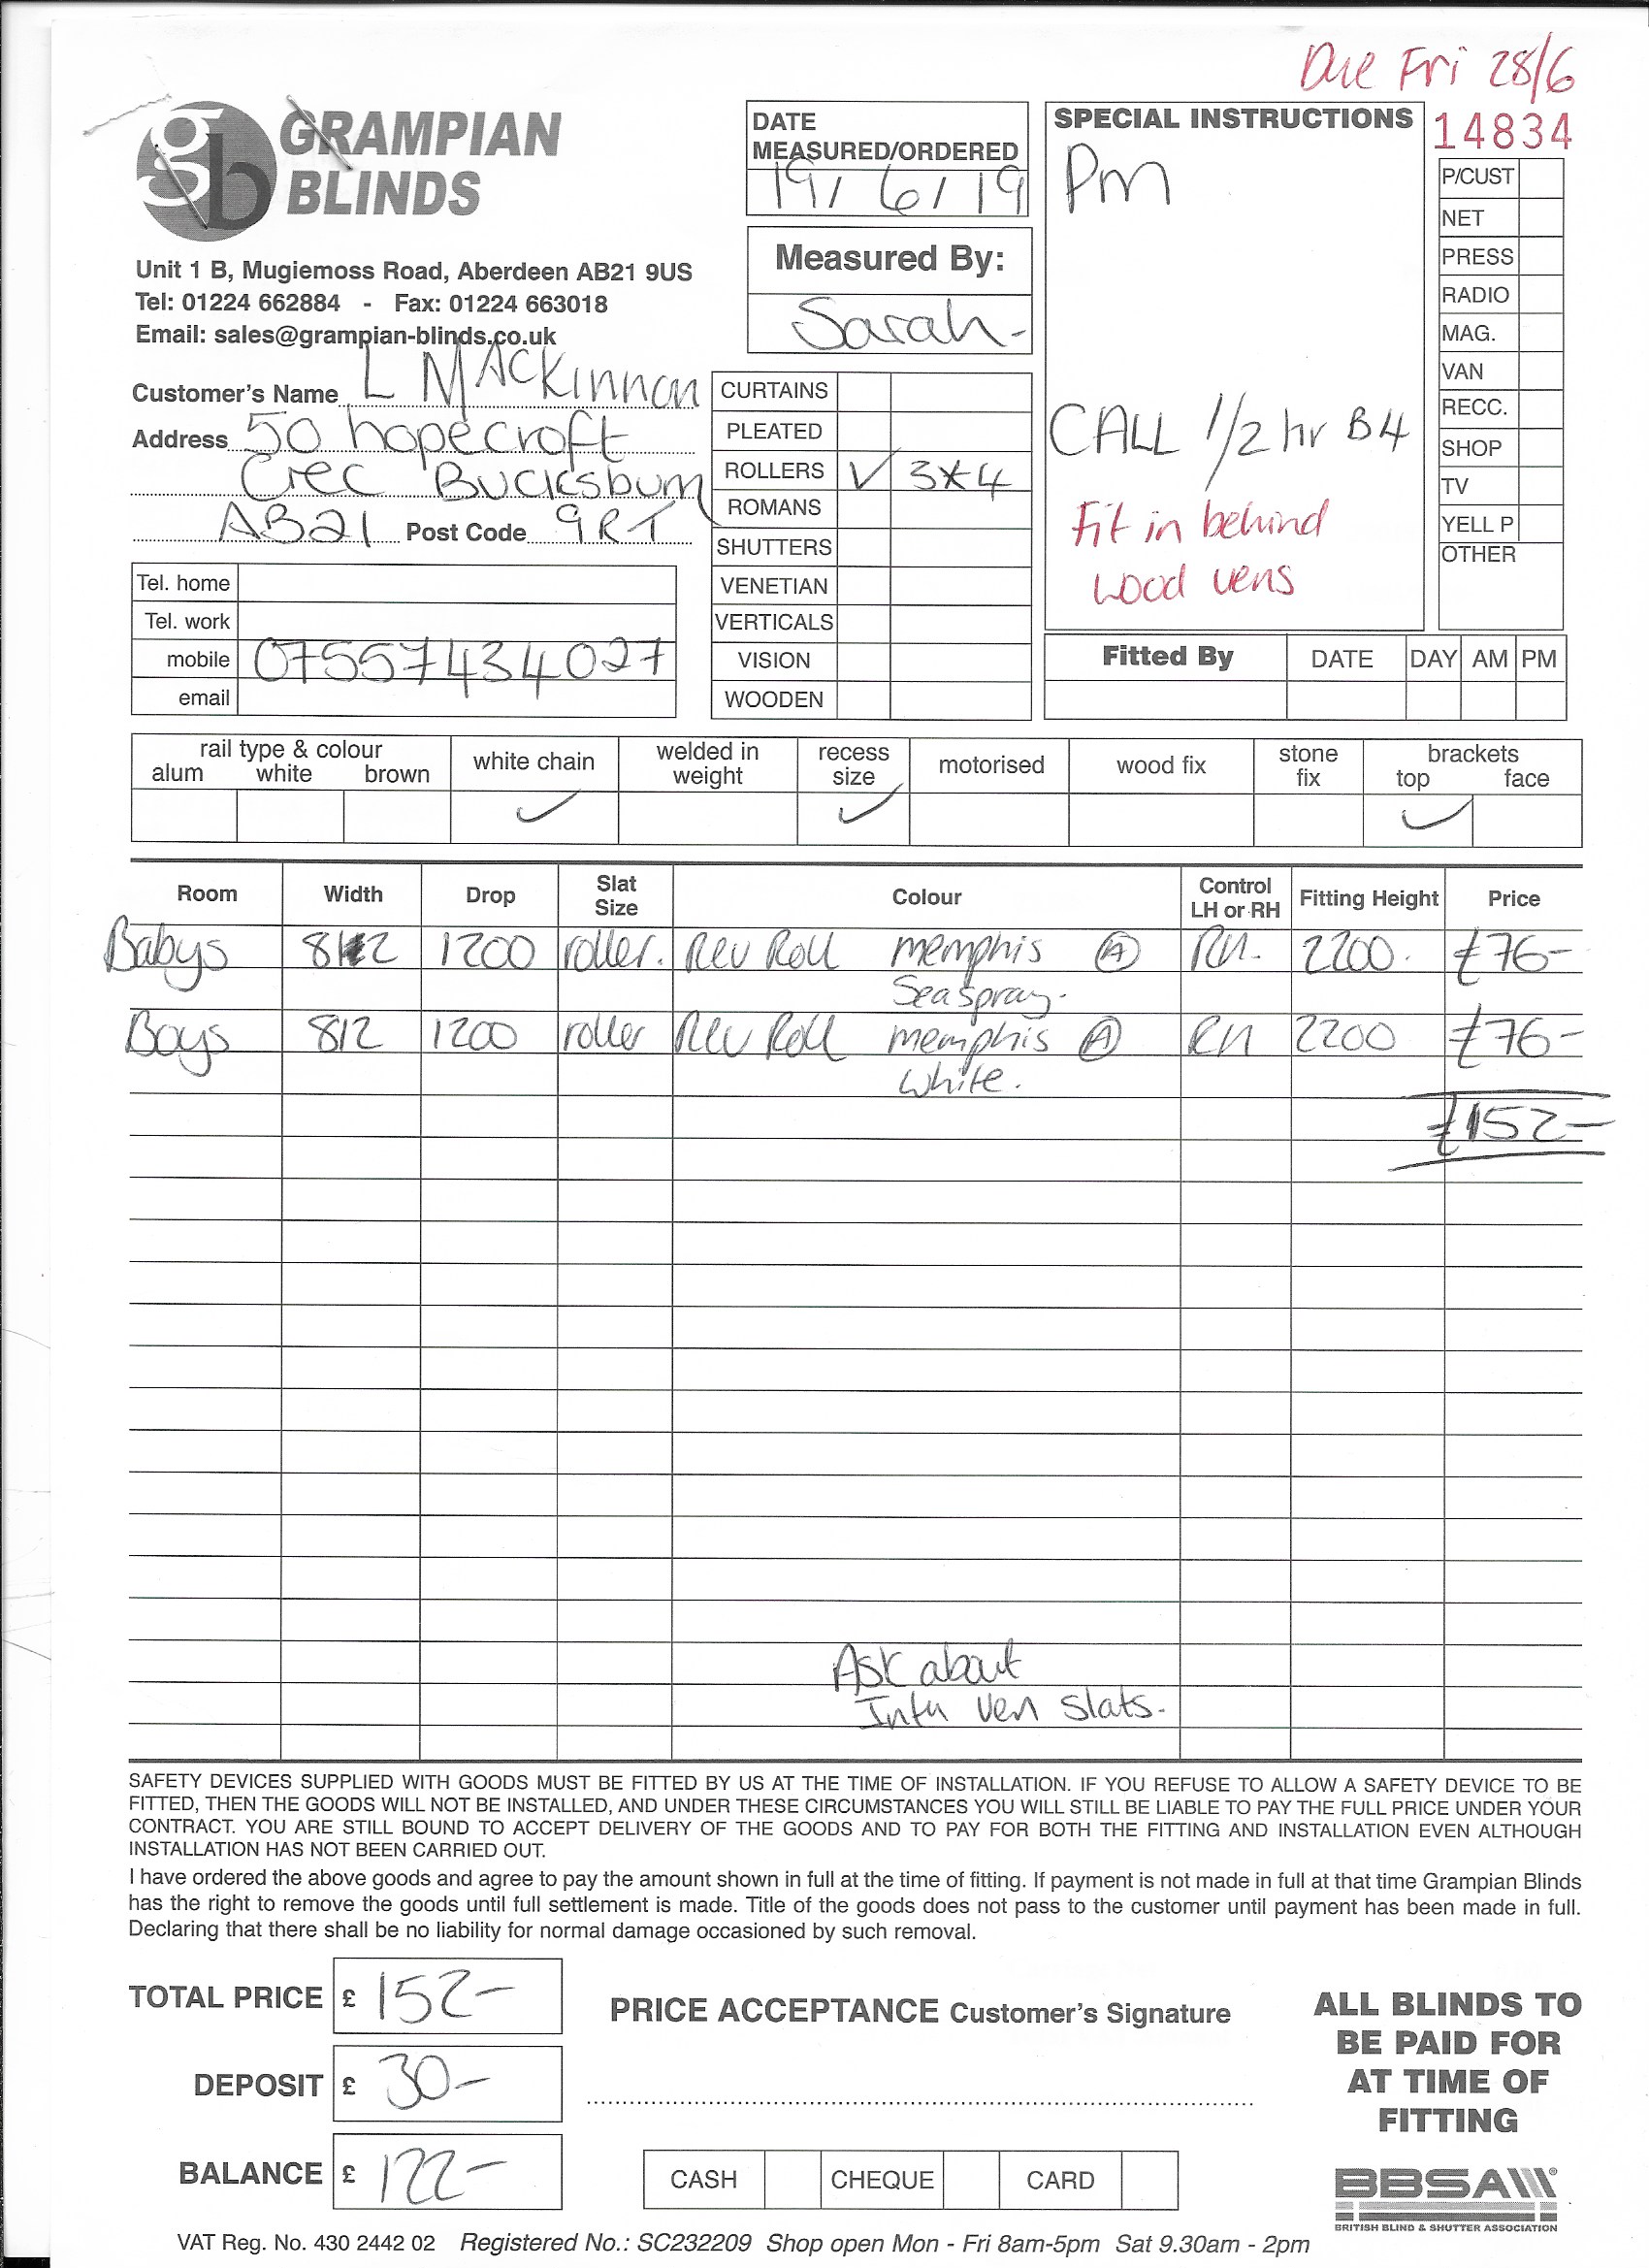 Due Fri 28/6
gb GRAMPIAN
BLINDS
Unit 1 B, Mugiemoss Road, Aberdeen AB21 9US
Tel: 01224 662884 - Fax: 01224 663018
Email: sales@grampian-blinds.co.uk
Customer's Name L MACKinnon
Address 50 hopecroft
Crec Bucksburn
AB21 Post Code 9RT
Tel. home
Tel. work
mobile 07557434027
email
DATE
MEASURED/ORDERED
19/6/19
Measured By:
Sarah-
CURTAINS
PLEATED
ROLLERS ✓ 3*4
ROMANS
SHUTTERS
VENETIAN
VERTICALS
VISION
WOODEN
SPECIAL INSTRUCTIONS
Pm
CALL 1/2 hr B4
Fit in behind
wood vens
14834
P/CUST
NET
PRESS
RADIO
MAG.
VAN
RECC.
SHOP
TV
YELL P
OTHER
Fitted By DATE DAY AM PM
rail type & colour white chain welded in weight recess size motorised wood fix stone fix brackets
alum white brown top face
✓ ✓ ✓
Room Width Drop Slat Size Colour Control LH or RH Fitting Height Price
Babys 812 1200 roller. Rev Roll memphis Ⓐ RH. 2200. £76-
Seaspray.
Boys 812 1200 roller Rev Roll memphis Ⓐ RH 2200 £76-
white.
£152-
Ask about
Intu Ven Slats.
SAFETY DEVICES SUPPLIED WITH GOODS MUST BE FITTED BY US AT THE TIME OF INSTALLATION. IF YOU REFUSE TO ALLOW A SAFETY DEVICE TO BE
FITTED, THEN THE GOODS WILL NOT BE INSTALLED, AND UNDER THESE CIRCUMSTANCES YOU WILL STILL BE LIABLE TO PAY THE FULL PRICE UNDER YOUR
CONTRACT. YOU ARE STILL BOUND TO ACCEPT DELIVERY OF THE GOODS AND TO PAY FOR BOTH THE FITTING AND INSTALLATION EVEN ALTHOUGH
INSTALLATION HAS NOT BEEN CARRIED OUT.
I have ordered the above goods and agree to pay the amount shown in full at the time of fitting. If payment is not made in full at that time Grampian Blinds
has the right to remove the goods until full settlement is made. Title of the goods does not pass to the customer until payment has been made in full.
Declaring that there shall be no liability for normal damage occasioned by such removal.
TOTAL PRICE £ 152-
DEPOSIT £ 30-
BALANCE £ 122-
PRICE ACCEPTANCE Customer's Signature
CASH CHEQUE CARD
ALL BLINDS TO
BE PAID FOR
AT TIME OF
FITTING
BBSA
BRITISH BLIND & SHUTTER ASSOCIATION
VAT Reg. No. 430 2442 02 Registered No.: SC232209 Shop open Mon - Fri 8am-5pm Sat 9.30am - 2pm